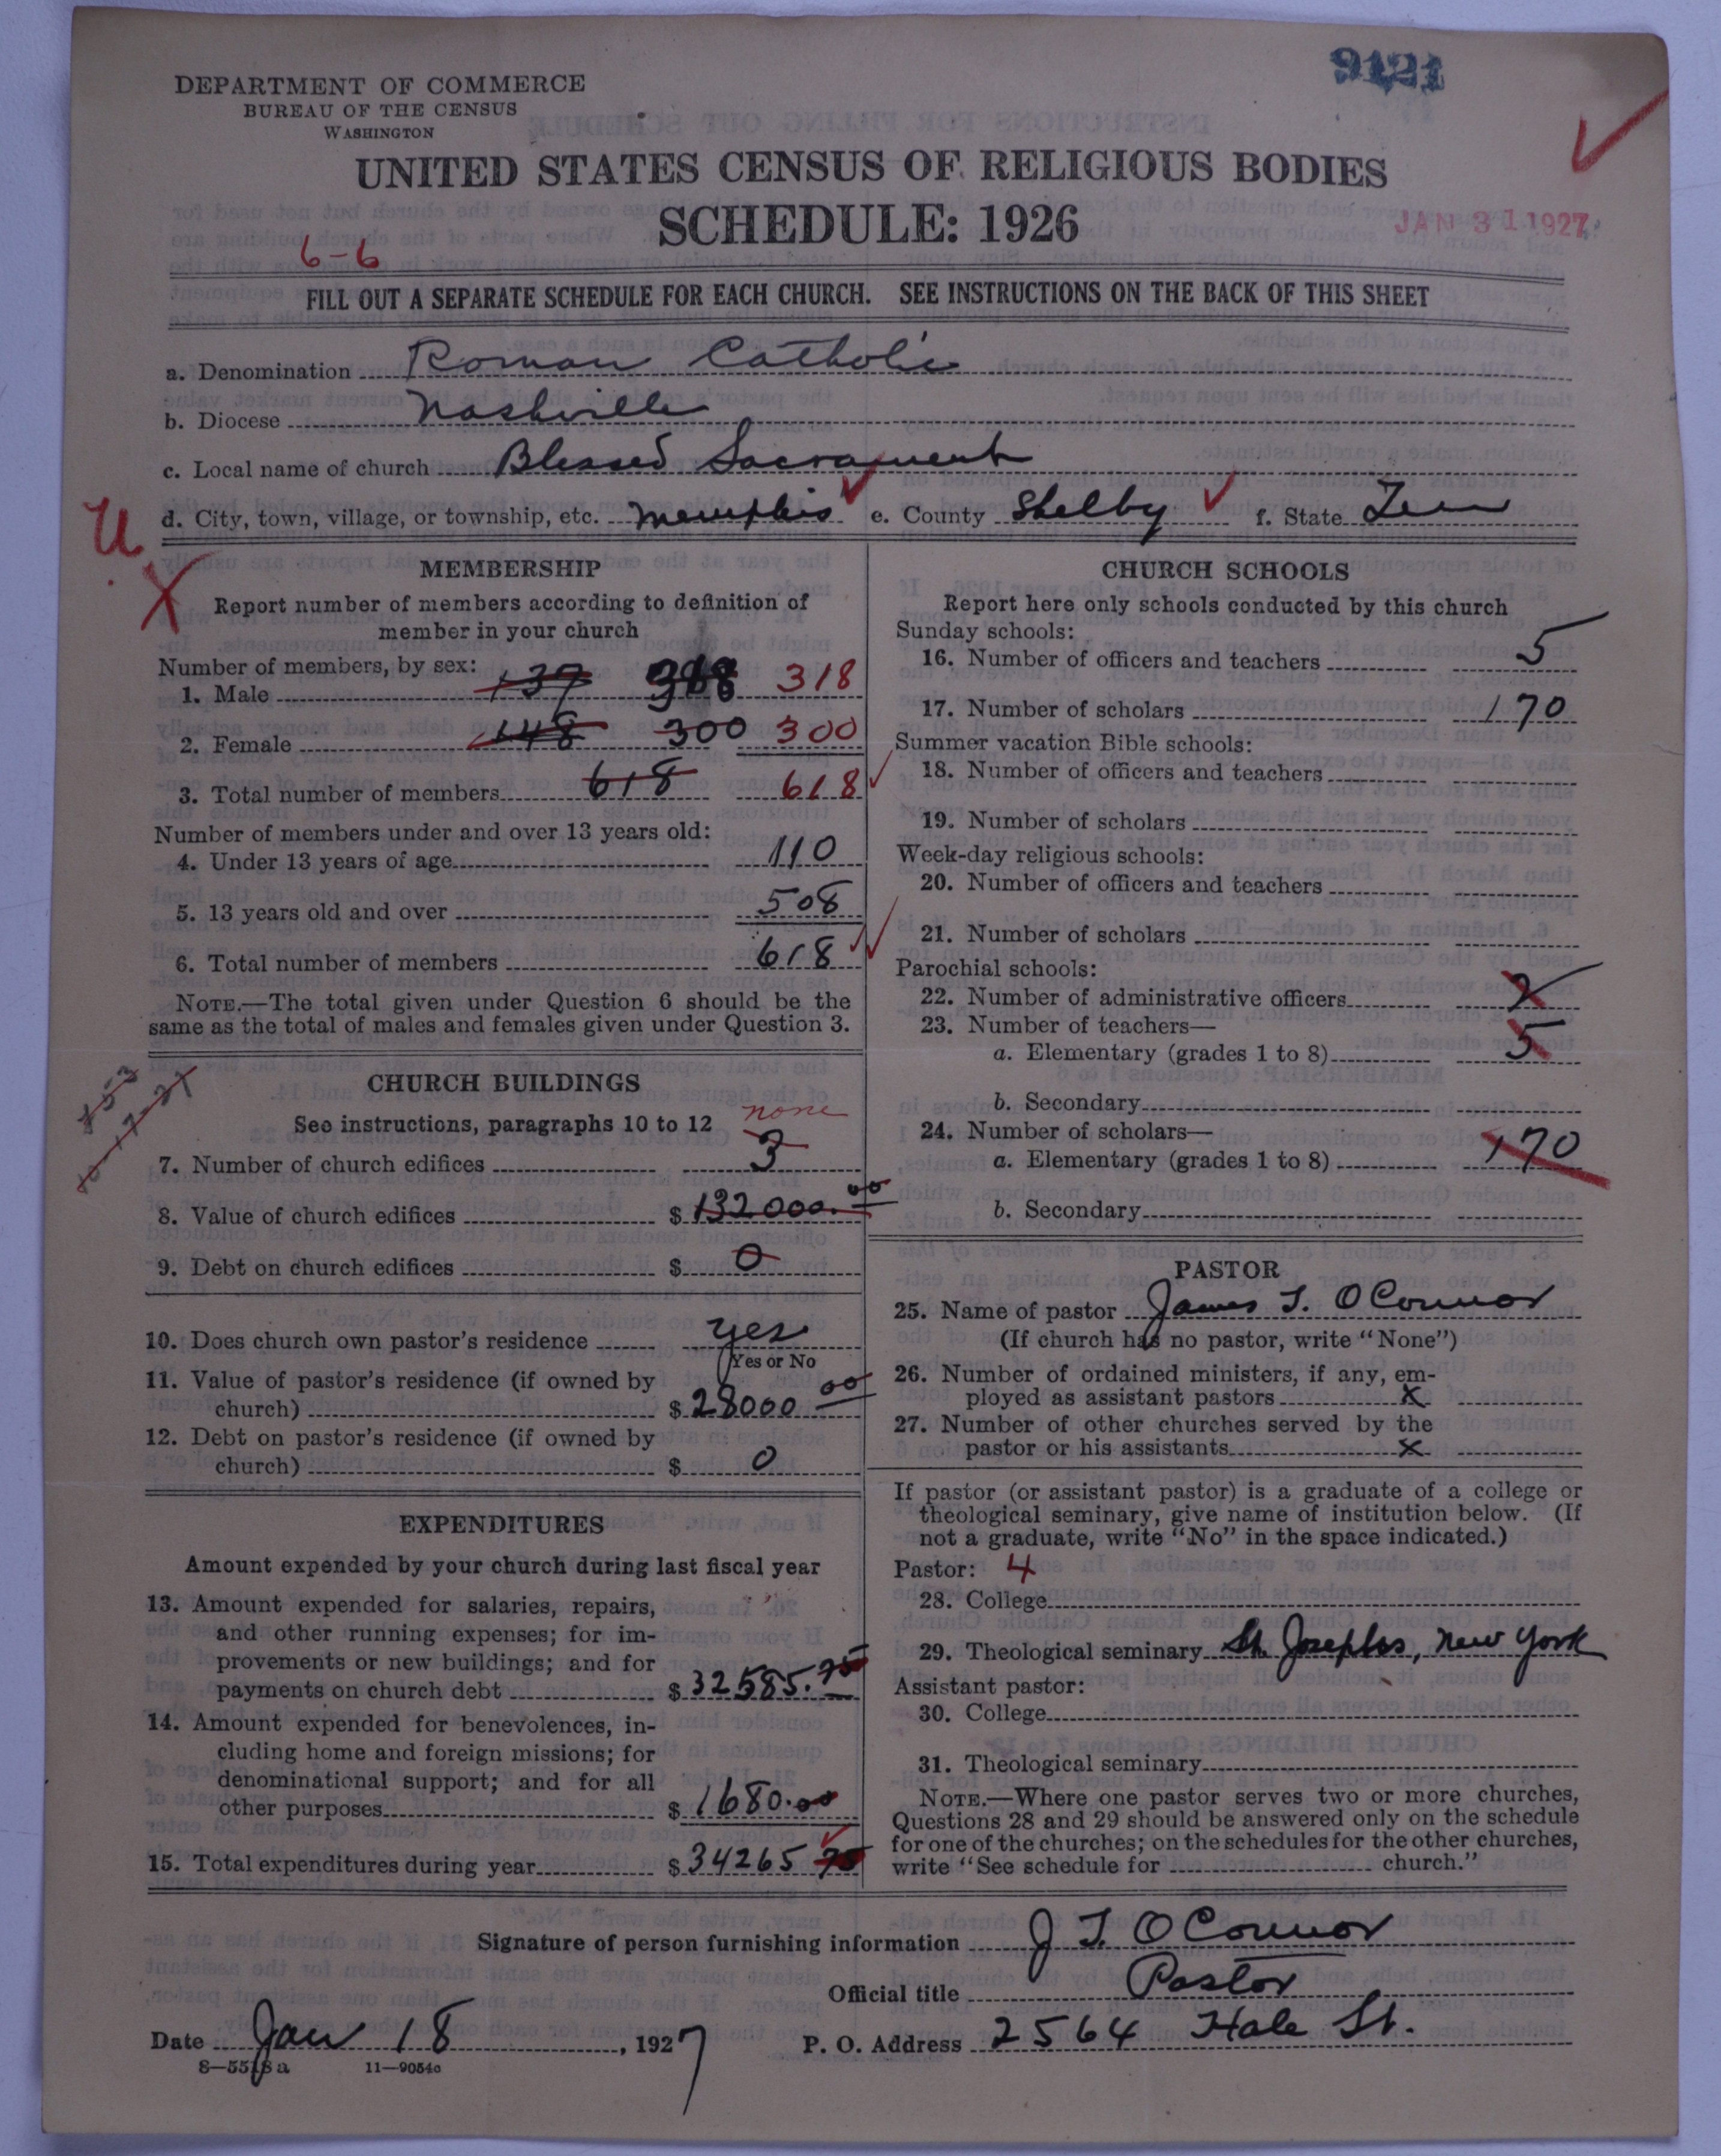 9121
DEPARTMENT OF COMMERCE
BUREAU OF THE CENSUS
WASHINGTON
UNITED STATES CENSUS OF RELIGIOUS BODIES
SCHEDULE: 1926
JAN 31 1927
6-6
FILL OUT A SEPARATE SCHEDULE FOR EACH CHURCH. SEE INSTRUCTIONS ON THE BACK OF THIS SHEET
a. Denomination Roman Catholic
b. Diocese Nashville
c. Local name of church Blessed Sacrament
d. City, town, village, or township, etc. Memphis e. County Shelby f. State Tenn
U
X
MEMBERSHIP
Report number of members according to definition of
member in your church
Number of members, by sex:
1. Male 137 318 318
2. Female 148 300 300
3. Total number of members 618 618
Number of members under and over 13 years old:
4. Under 13 years of age 110
5. 13 years old and over 508
6. Total number of members 618
NOTE.—The total given under Question 6 should be the
same as the total of males and females given under Question 3.
CHURCH BUILDINGS
See instructions, paragraphs 10 to 12
none
7. Number of church edifices 3
8. Value of church edifices $ 132000.00
9. Debt on church edifices $ 0
10. Does church own pastor's residence yes
Yes or No
11. Value of pastor's residence (if owned by
church) $ 28000 00
12. Debt on pastor's residence (if owned by
church) $ 0
EXPENDITURES
Amount expended by your church during last fiscal year
13. Amount expended for salaries, repairs,
and other running expenses; for im-
provements or new buildings; and for
payments on church debt $ 32585.75
14. Amount expended for benevolences, in-
cluding home and foreign missions; for
denominational support; and for all
other purposes $ 1680.00
15. Total expenditures during year $ 34265 75
CHURCH SCHOOLS
Report here only schools conducted by this church
Sunday schools:
16. Number of officers and teachers 5
17. Number of scholars 170
Summer vacation Bible schools:
18. Number of officers and teachers
19. Number of scholars
Week-day religious schools:
20. Number of officers and teachers
21. Number of scholars
Parochial schools:
22. Number of administrative officers 2
23. Number of teachers—
a. Elementary (grades 1 to 8) 5
b. Secondary
24. Number of scholars—
a. Elementary (grades 1 to 8) 170
b. Secondary
PASTOR
25. Name of pastor James T. O Connor
(If church has no pastor, write "None")
26. Number of ordained ministers, if any, em-
ployed as assistant pastors x
27. Number of other churches served by the
pastor or his assistants x
If pastor (or assistant pastor) is a graduate of a college or
theological seminary, give name of institution below. (If
not a graduate, write "No" in the space indicated.)
Pastor: 4
28. College
29. Theological seminary St. Josephs, New York
Assistant pastor:
30. College
31. Theological seminary
NOTE.—Where one pastor serves two or more churches,
Questions 28 and 29 should be answered only on the schedule
for one of the churches; on the schedules for the other churches,
write "See schedule for church."
Signature of person furnishing information J T. O Connor
Official title Pastor
Date Jan 18, 1927 P. O. Address 2564 Hale St.
8—5518 a 11—9054c